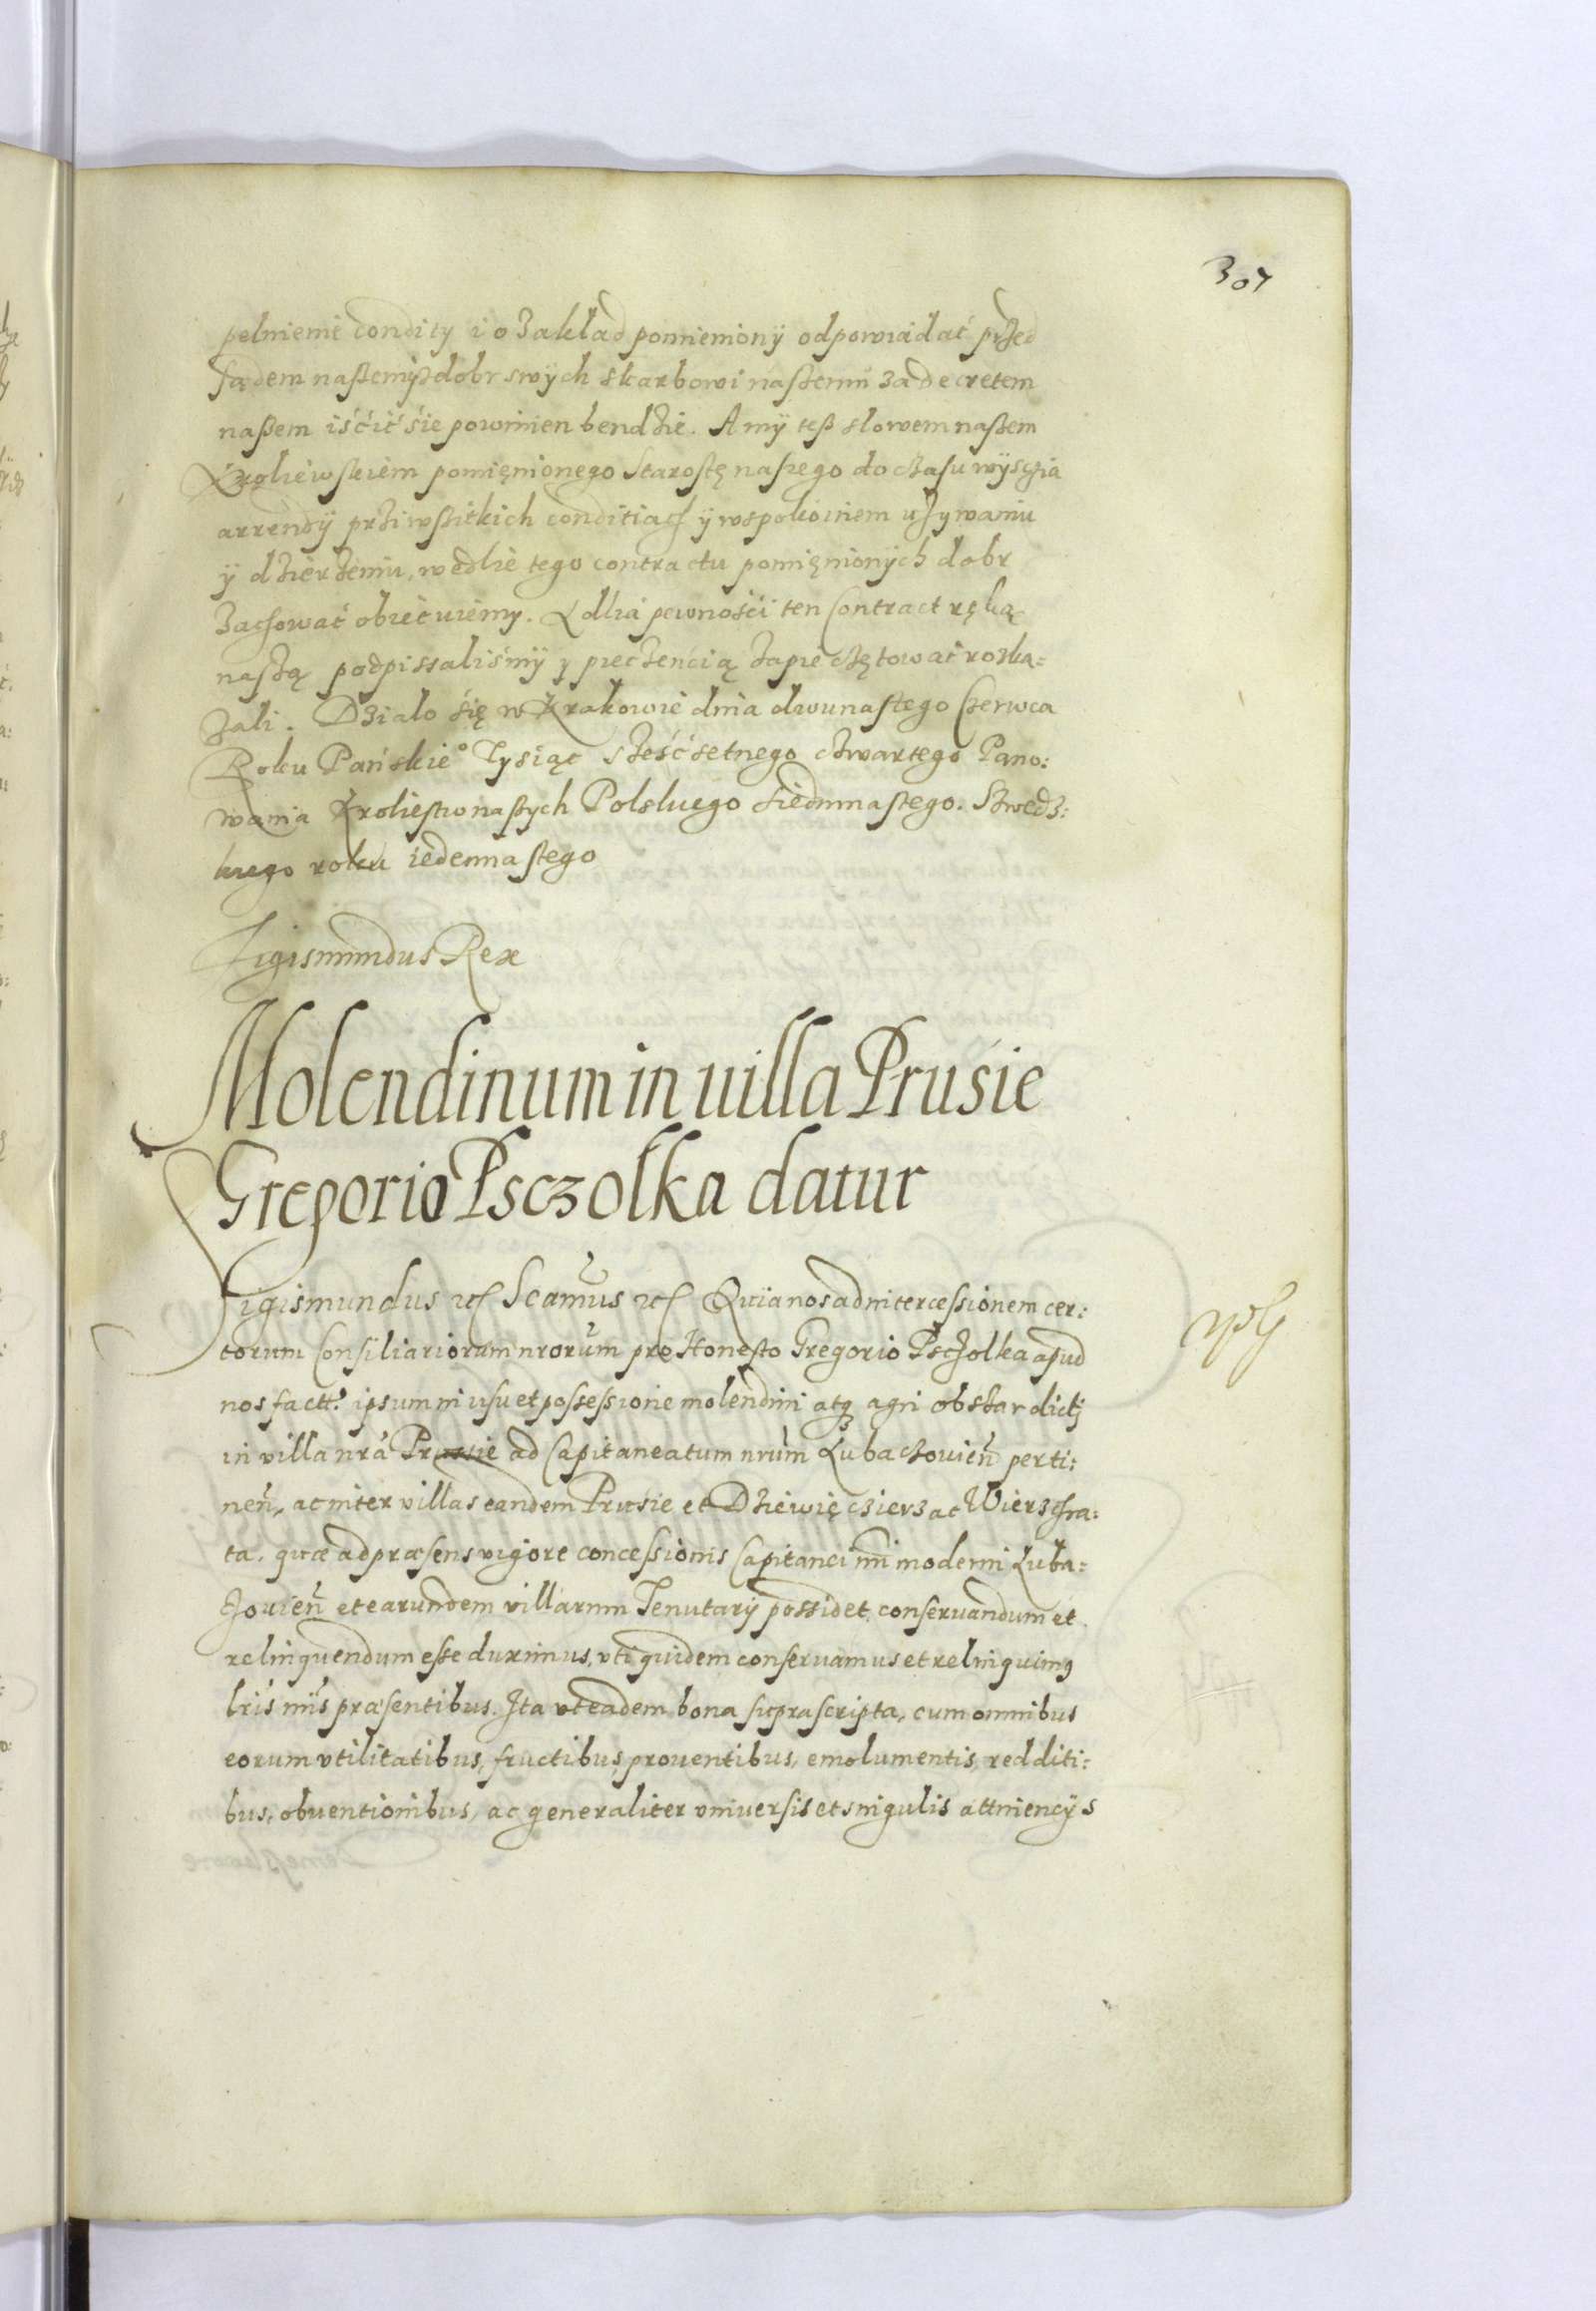 307
pełnienie condity i o zakład pomieniony odpowiadać przed
sądem naszemÿ z dobr swych skarbowi naszemu za decretem
naszem iśćić śie powinien bendzie. A mÿ tesz słowem naszem
Krolewskiem pomięnionego Starostę naszego do czasu wÿsczia
arrendÿ prziwszitkich conditiach ÿ wspokoiniem używaniu
ÿ dzierżeniu, wedlie tego contractu pomięnionÿch dobr
zachować obiecuiemy. A dlia pewnośći ten Contract ręką
naszą podpissaliśmÿ y pieczenćią zapieczętować roska=
zali. Dzialo śię w Krakowie dnia dwunastego Czerwca
Roku Pańskieº Tysiąc sześćsetnego czwartego Pano:
wania Kroliestw naszych Polskiego siedmnastego. Szwedz:
kiego roku iedennastego
Sigismundus Rex
Molendinum in uilla Prusie
Gregorio Psczolka datur
Sigismundus etc Scamus etc Quia nos ad intercessionem cer:
torum Consiliariorum nrorum pro Honesto Gregorio Psczolka apud
nos factt. ipsum in usu et possessione molendini atq agri obszar dictj
in villa nra Prusie ad Capitaneatum nrum Lubaczouien perti:
nen, ac inter villas eandem Prusie et Dziewięczierz ac Wierzchra:
ta, quæ ad præsens vigore concessionis Capitanei nri moderni Luba=
czouien et earundem villarum Tenutarij possidet, conseruandum et
relinquendum esse duximus, vti quidem conseruamus et relinquimq
lris nris præsentibus. Ita vt eadem bona suprascripta, cum omnibus
eorum vtilitatibus, fructibus, prouentibus, emolumentis, redditi:
bus, obuentionibus, ac generaliter vniuersis et singulis attinencÿs